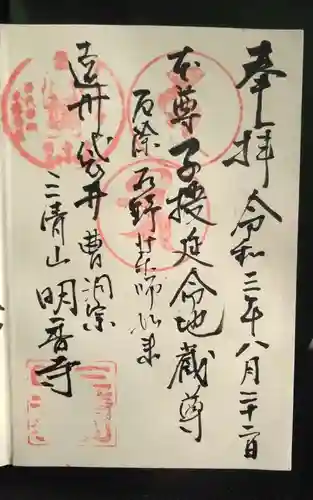 奉拝 令和三年八月二十二日
本尊 子授延命地蔵尊
石野薬師如来
遠州袋井曹洞宗
三清山 明晋寺